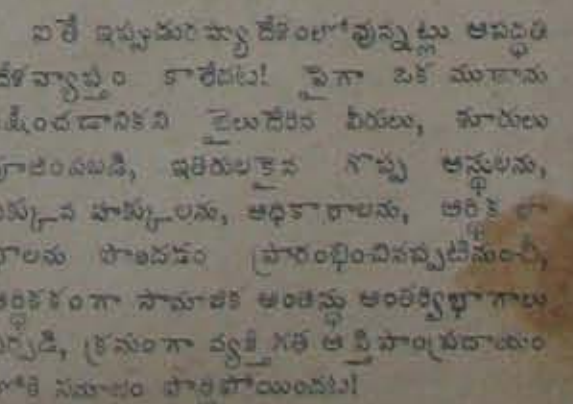 ఐతే ఇప్పుడురష్యా దేశంలోవున్నట్లు ఆపద్ధతి
దేశవ్యాప్తం కాలేదట! పైగా ఒక ముఠాను
క్షించడానికని బైలుదేరిన వీరులు, శూరులు
పూజింపబడి, ఇతరులకైన గొప్ప ఆస్థులను,
ఎక్కువ హక్కులను, అధికారాలను, ఆర్థిక లా
రాలను పొందడం ప్రారంభించినప్పటినుంచీ,
ఆర్థికకంగా సామాజిక అంతస్థు అంతర్విభాగాలు
ఏర్పడి, క్రమంగా వ్యక్తిగత ఆస్తి సాంప్రదాయం
లోకి సమాజం పోయిందట!